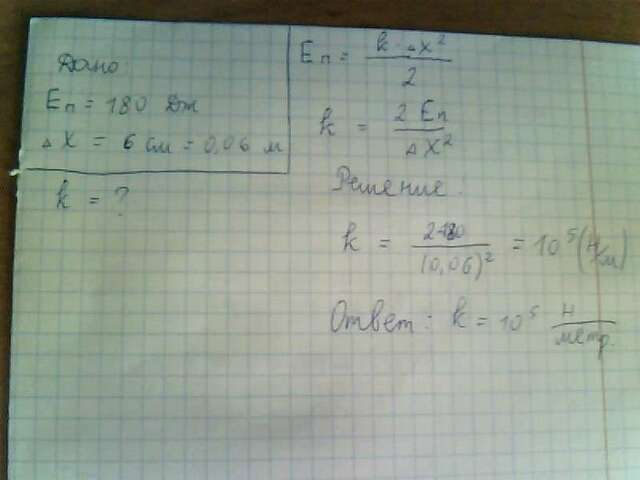 Дано
Eп = 180 Дж
△X = 6 см = 0,06 м
k = ?
Eп = k·△X² / 2
k = 2 Eп / △X²
Решение.
k = 2·180 / (0,06)² = 10⁵ (Н/м)
Ответ: k = 10⁵ Н / метр.